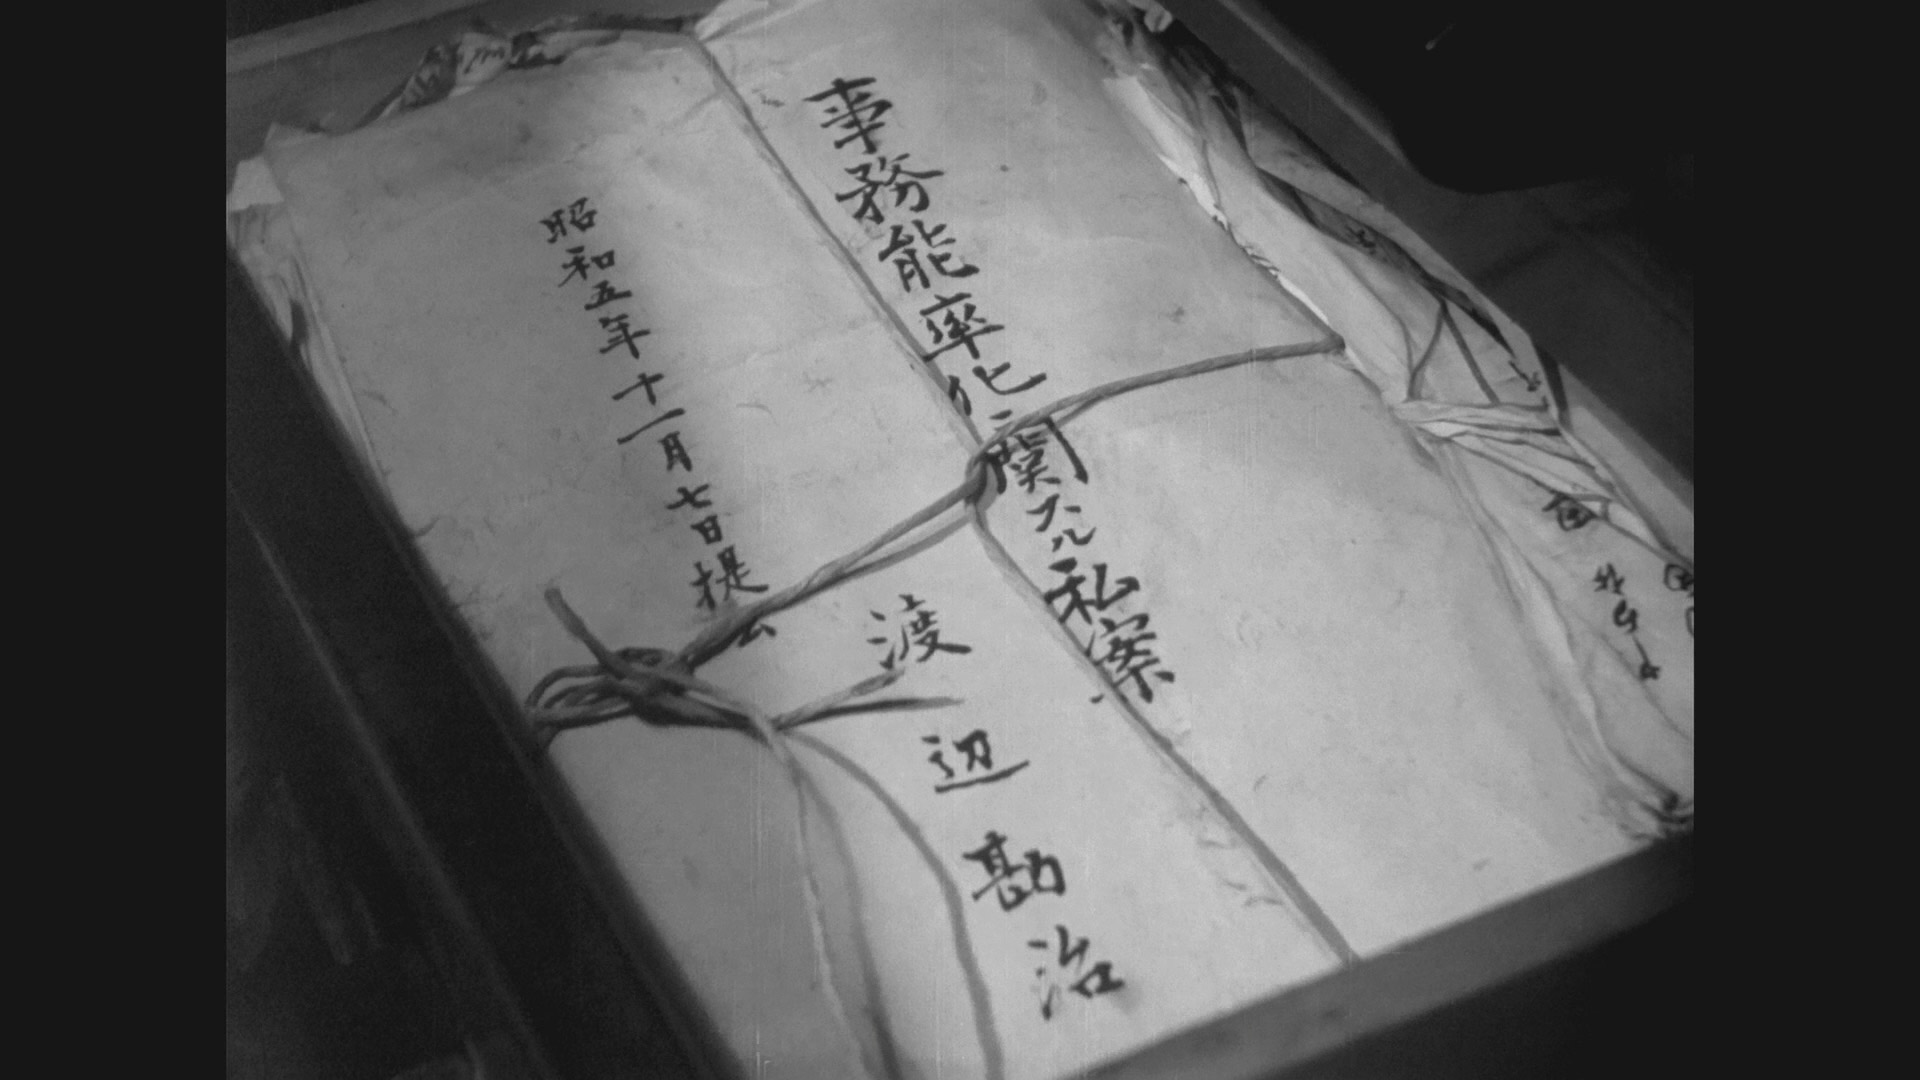 事務能率化ニ関スル私案
渡辺勘治
昭和五年十一月七日提出